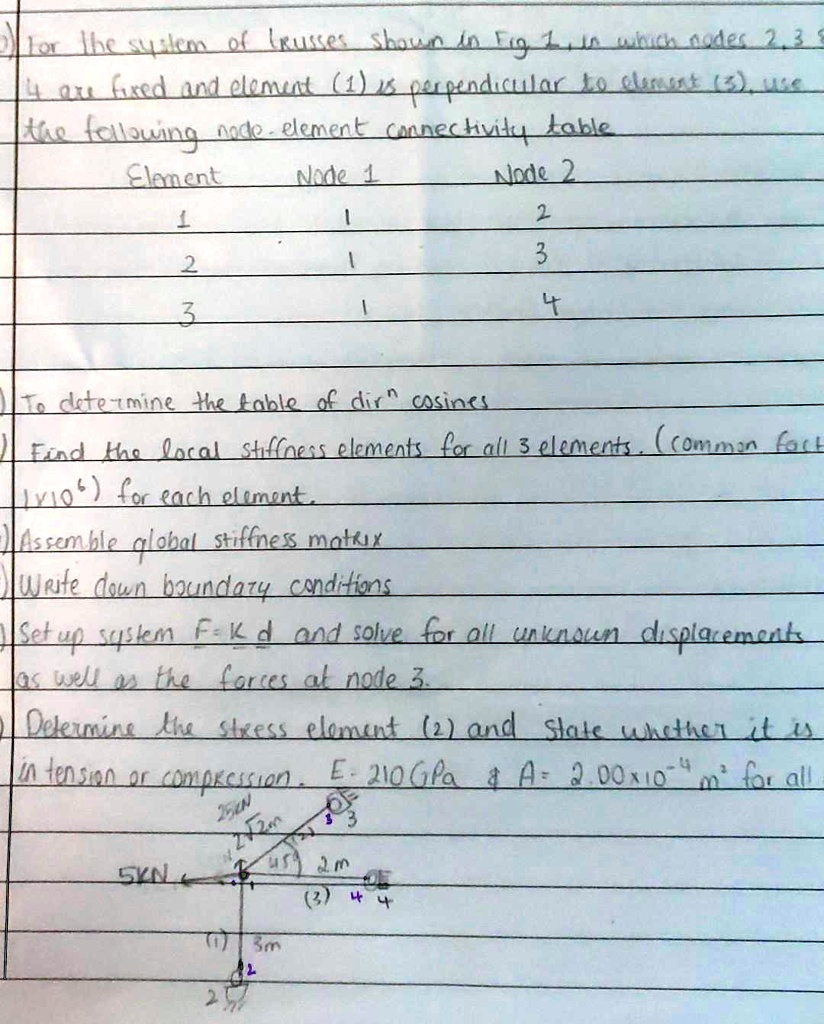 ) For the system of trusses shown in Fig 1, in which nodes 2, 3 &
4 are fixed and element (1) is perpendicular to element (3), use
the following node-element connectivity table
Element Node 1 Node 2
1 1 2
2 1 3
3 1 4
) To determine the table of dirⁿ cosines
) Find the local stiffness elements for all 3 elements. (common fact
1x10⁶) for each element.
) Assemble global stiffness matrix
) Write down boundary conditions
) Set up system F = K d and solve for all unknown displacements
as well as the forces at node 3.
) Determine the stress element (2) and State whether it is
in tension or compression. E = 210 GPa & A = 2.00x10⁻⁴ m² for all
25KN
2√2m (2) 3 3
5KN 1 45° 2m
(3) 4 4
(1) 3m
2
2